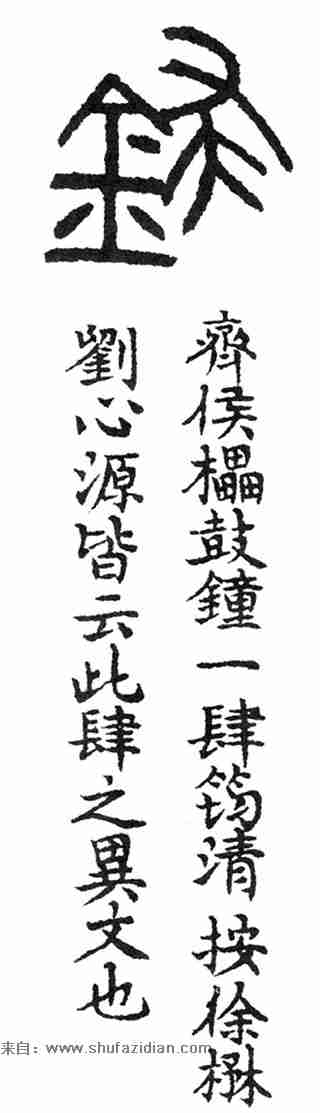 齊侯櫑鼓鐘一肆筠清 按徐楙
劉心源皆云此肆之異文也
来自：www.shufazidian.com